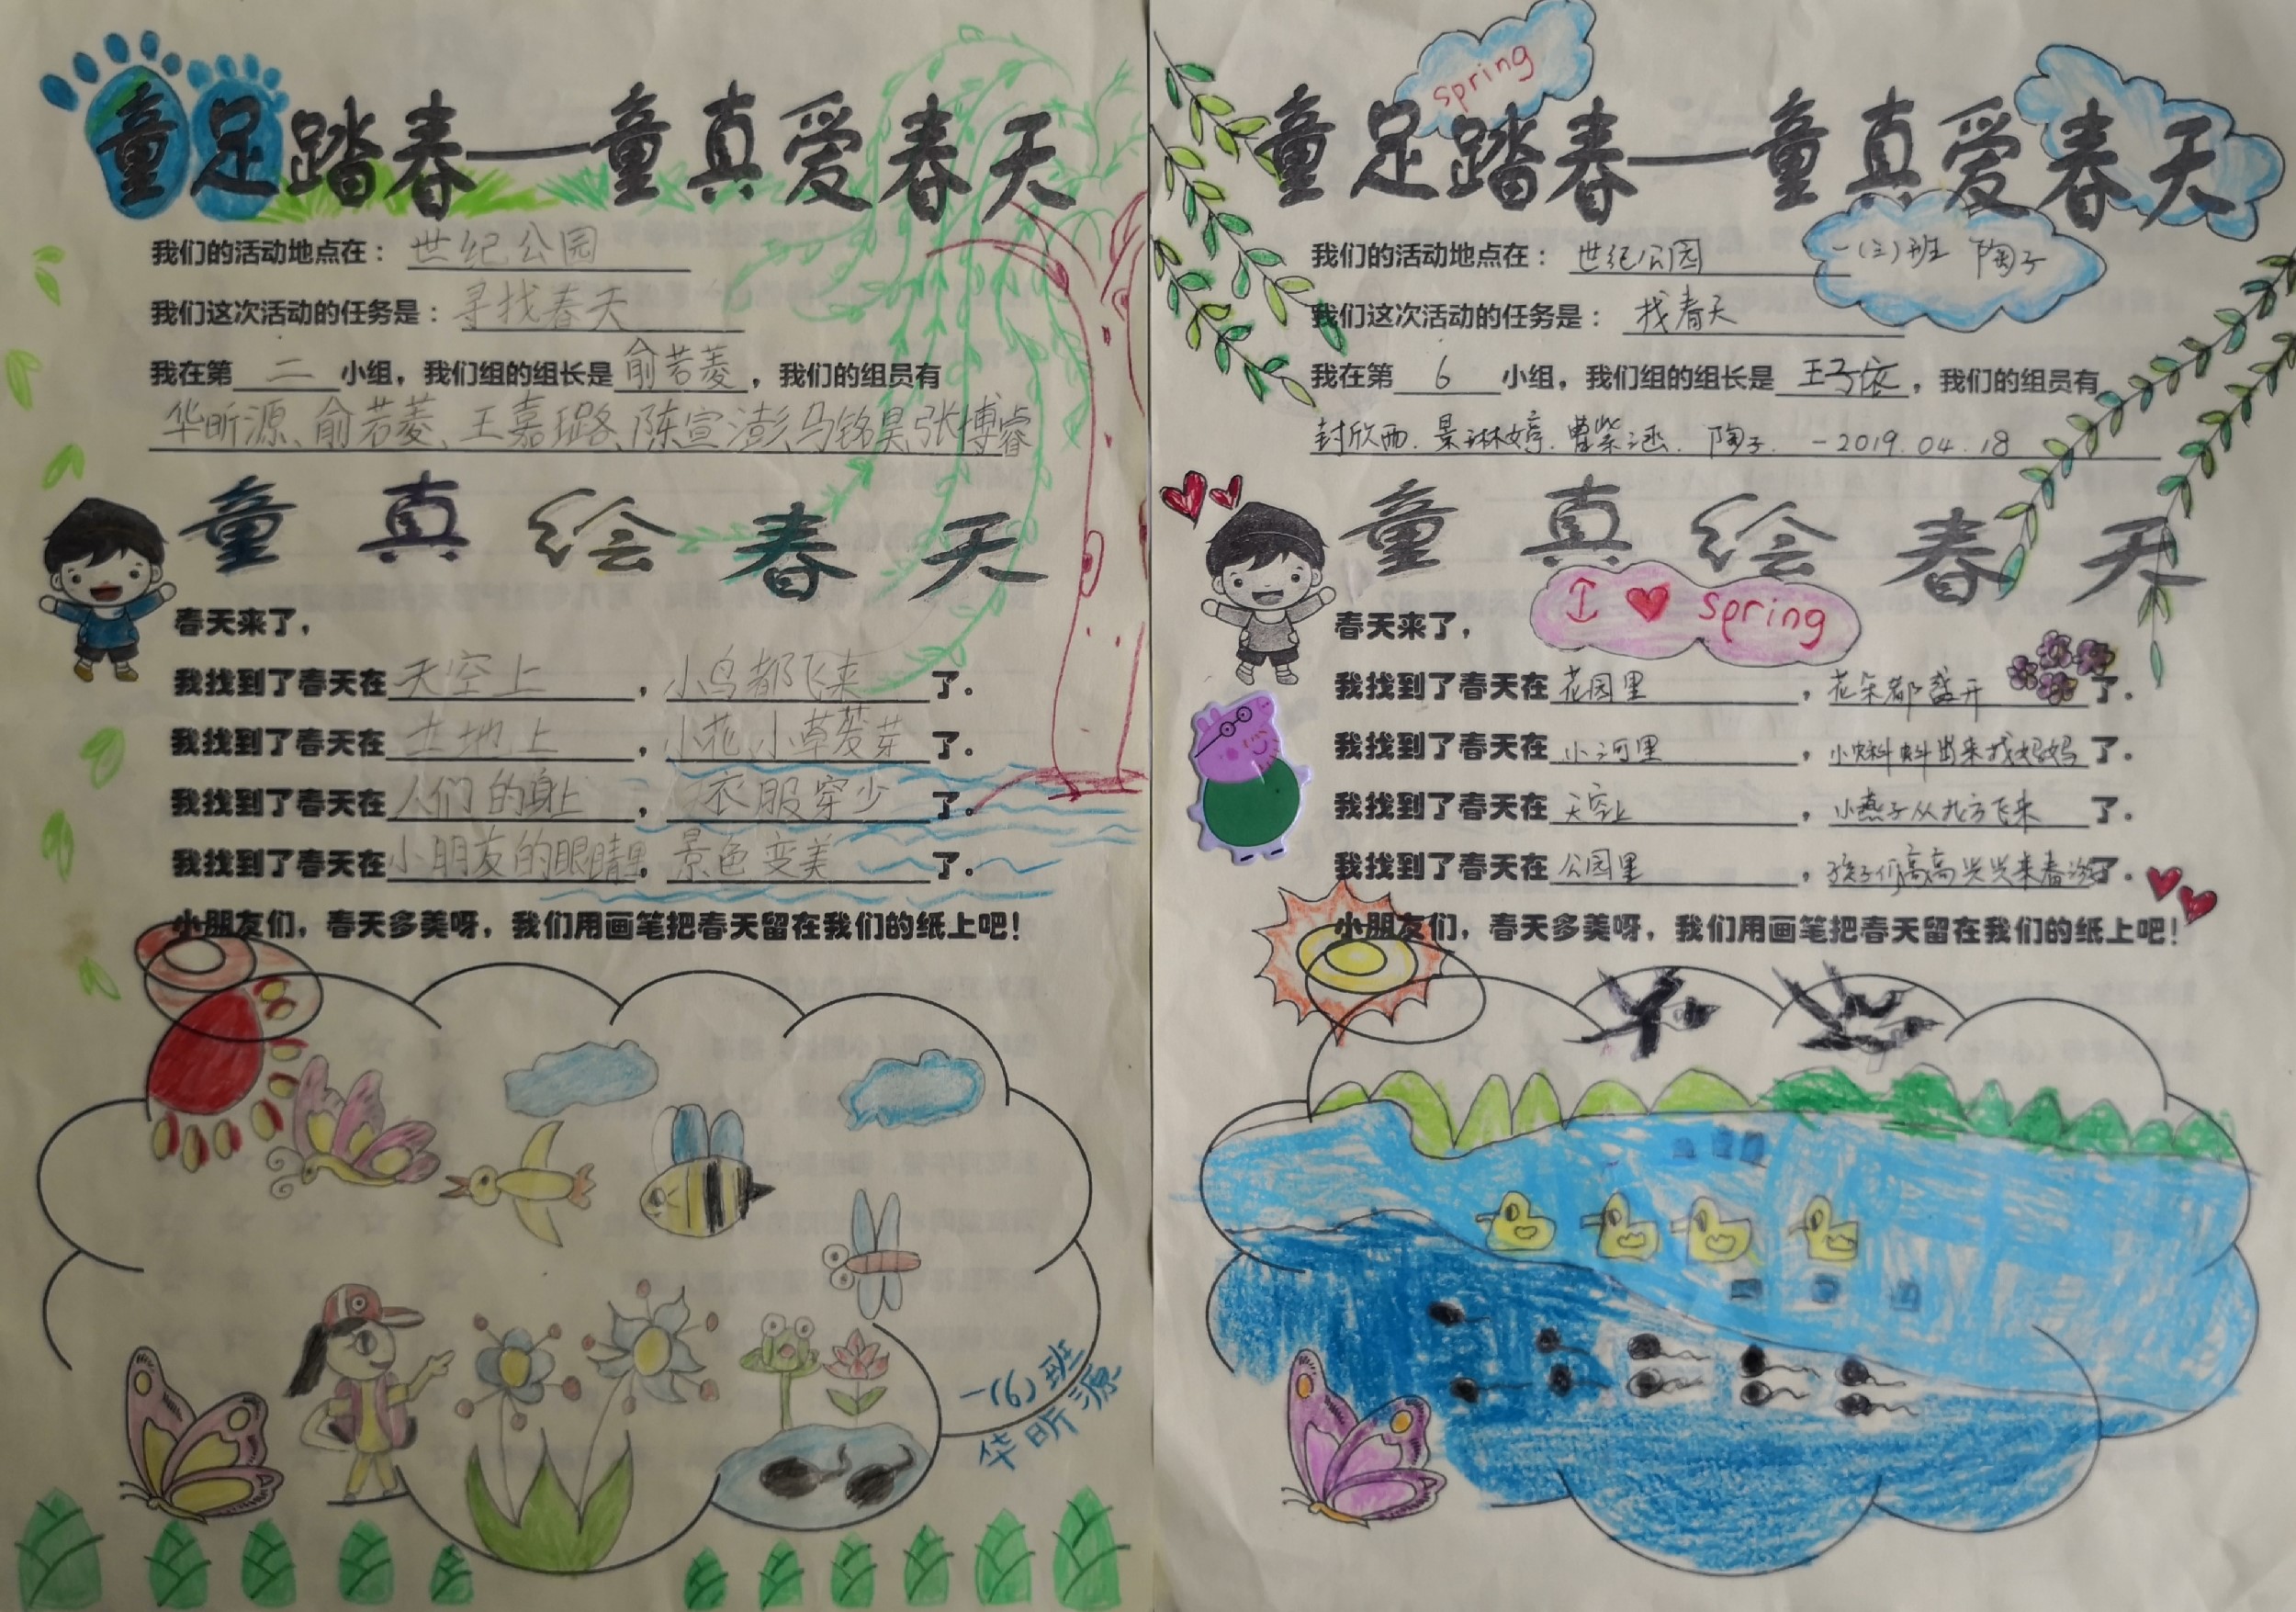 童足踏春——童真爱春天
我们的活动地点在：世纪公园
我们这次活动的任务是：寻找春天
我在第二小组，我们组的组长是俞若菱，我们的组员有
华昕源、俞若菱、王嘉璐、陈宣澎、马铭昊、张博睿
童真绘春天
春天来了，
我找到了春天在天空上，小鸟都飞来了。
我找到了春天在土地上，小花小草发芽了。
我找到了春天在人们的身上，衣服穿少了。
我找到了春天在小朋友的眼睛里，景色变美了。
小朋友们，春天多美呀，我们用画笔把春天留在我们的纸上吧！
一(6)班
华昕源
spring
童足踏春——童真爱春天
我们的活动地点在：世纪公园
一(三)班 陶子
我们这次活动的任务是：找春天
我在第6小组，我们组的组长是王子依，我们的组员有
封欣西.景琳婷.曹紫涵.陶子.-2019.04.18
童真绘春天
I ♥ spring
春天来了，
我找到了春天在花园里，花朵都盛开了。
我找到了春天在小河里，小蝌蚪出来找妈妈了。
我找到了春天在天空上，小燕子从北方飞来了。
我找到了春天在公园里，孩子们高高兴兴来春游了。
小朋友们，春天多美呀，我们用画笔把春天留在我们的纸上吧！